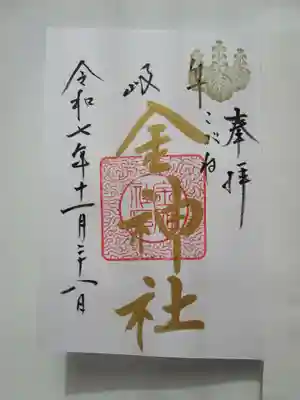 奉拝
岐阜
こがね
金神社
令和七年十一月二十八日